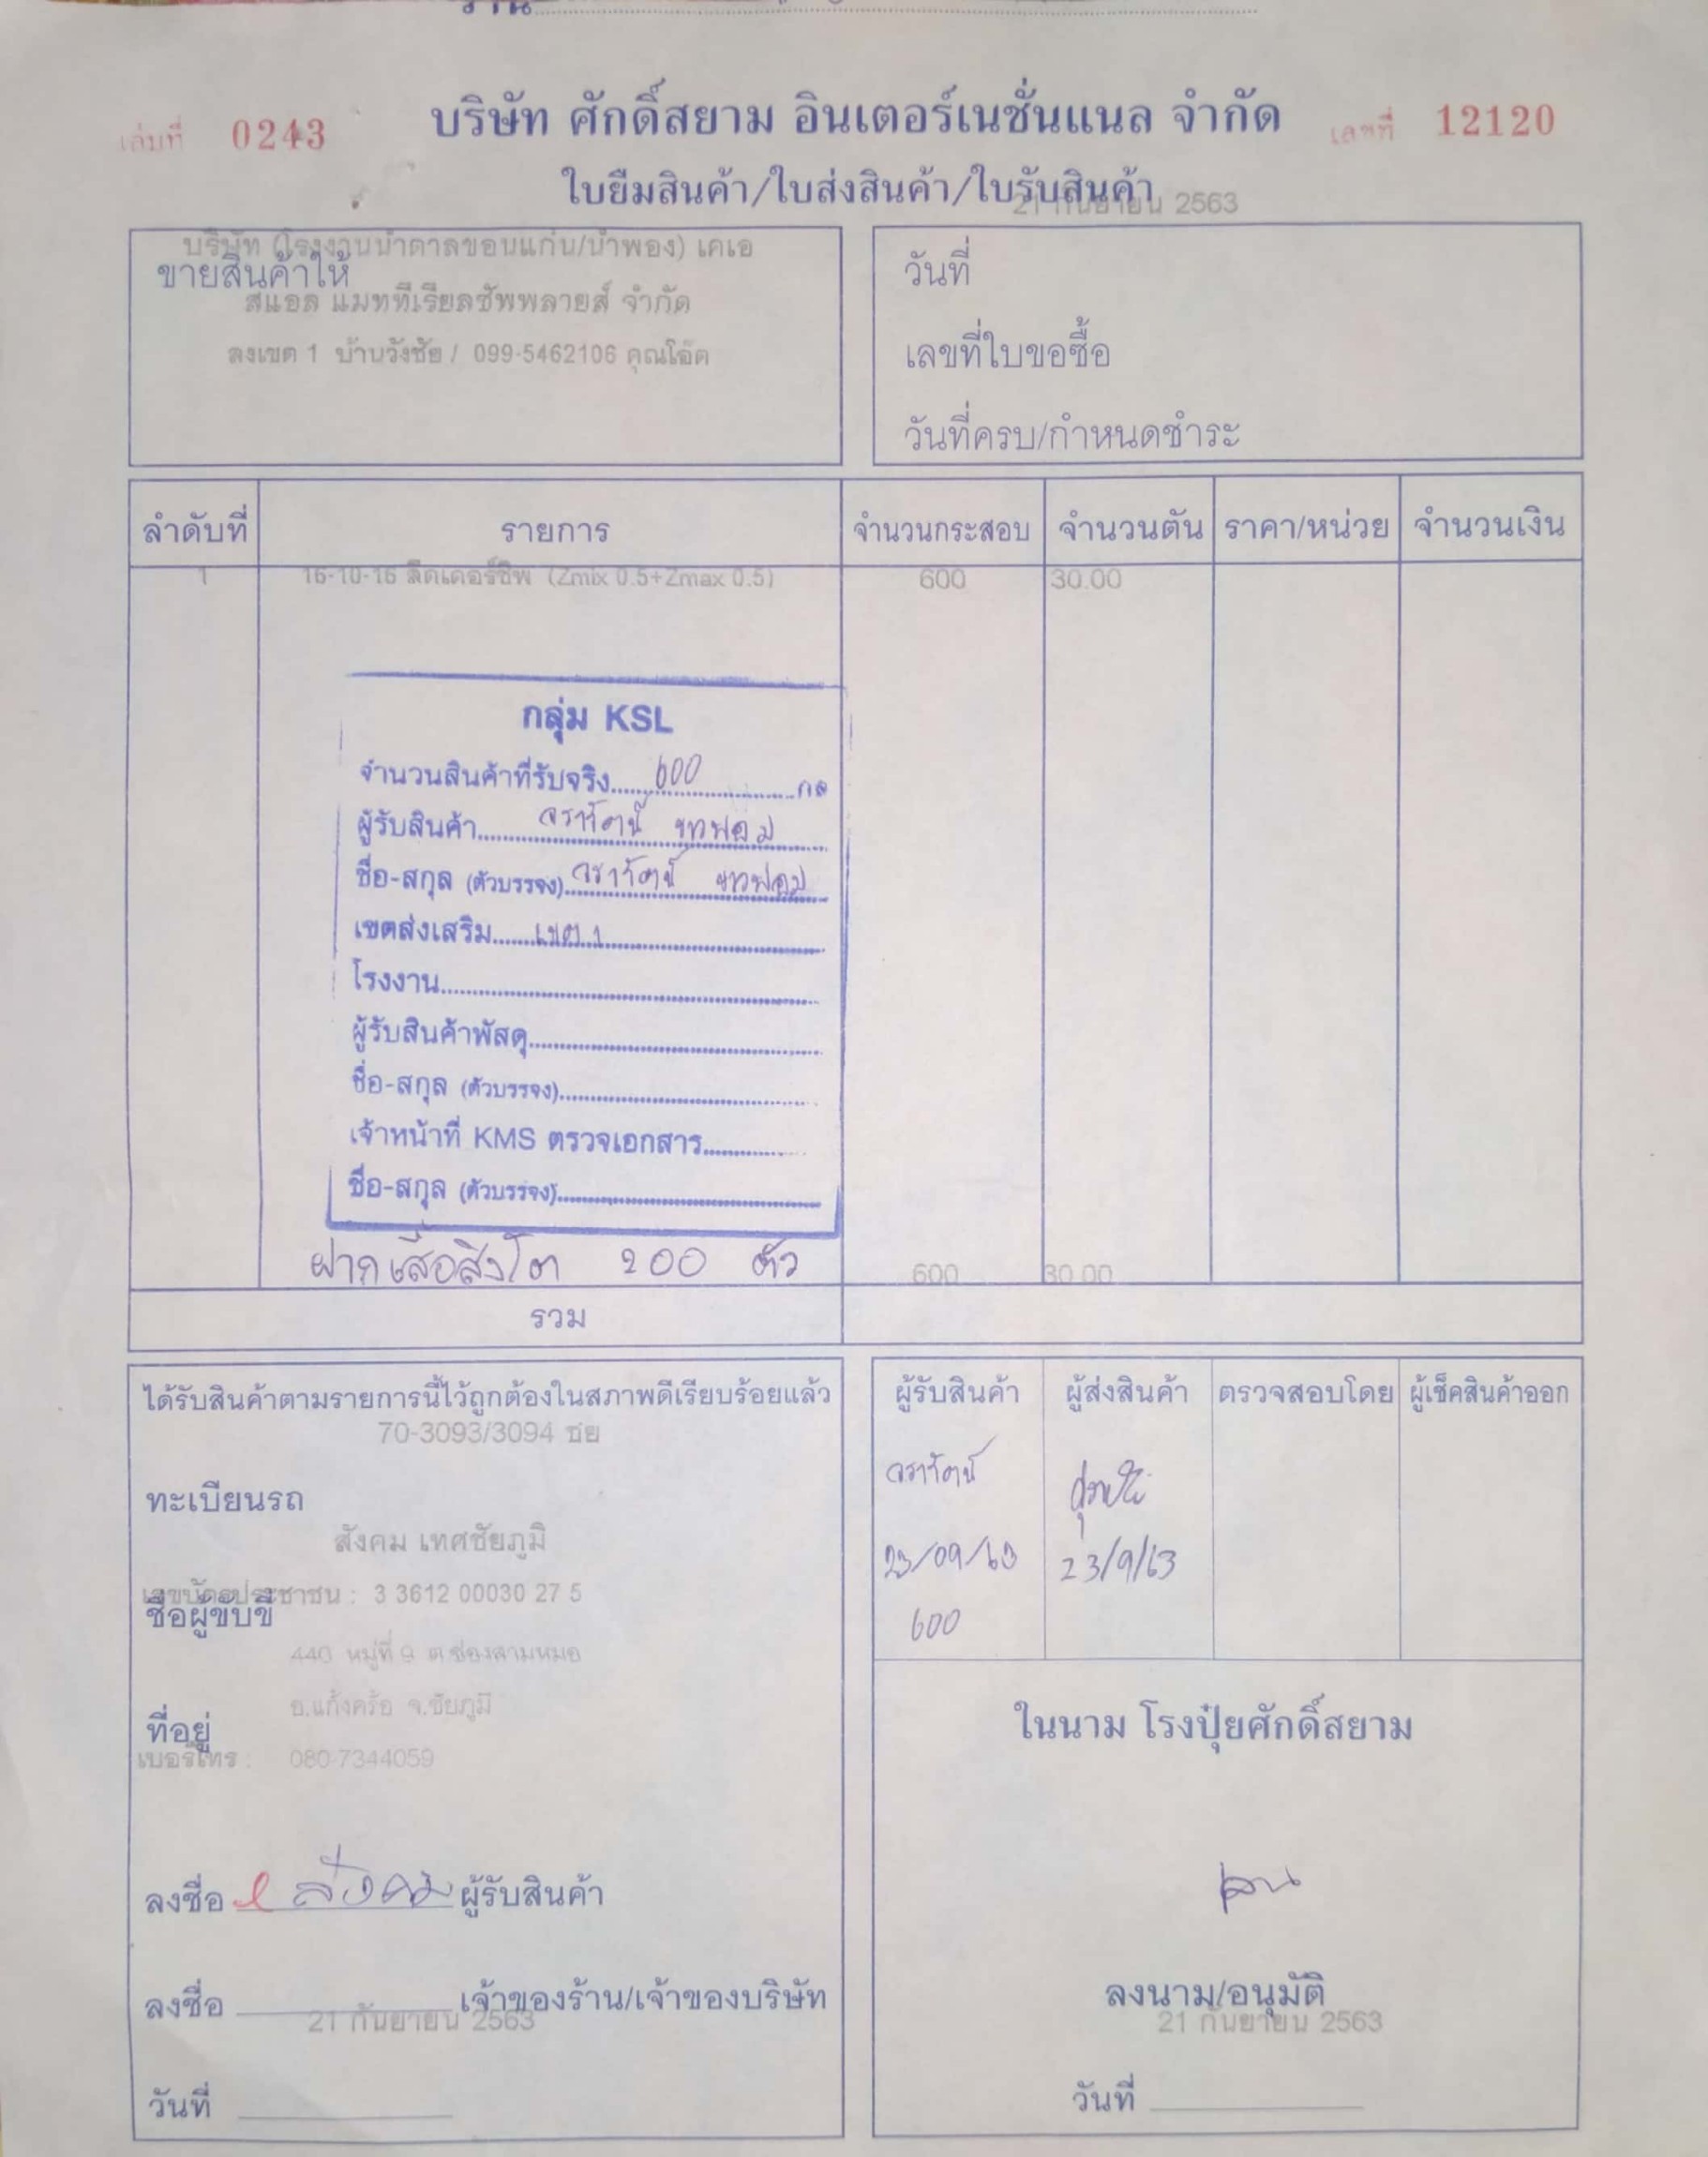 เล่มที่ 0243
บริษัท ศักดิ์สยาม อินเตอร์เนชั่นแนล จำกัด
เลขที่ 12120
ใบยืมสินค้า/ใบส่งสินค้า/ใบรับสินค้า
21 กันยายน 2563
บริษัท (โรงงานน้ำตาลขอนแก่น/น้ำพอง) เคเอ
ขายสินค้าให้
สแอล แมททีเรียลซัพพลายส์ จำกัด
ลงเขต 1 บ้านวังชัย / 099-5462106 คุณโอ๊ต
วันที่
เลขที่ใบขอซื้อ
วันที่ครบ/กำหนดชำระ
ลำดับที่ รายการ จำนวนกระสอบ จำนวนตัน ราคา/หน่วย จำนวนเงิน
1 16-10-16 ลีดเดอร์ชิพ (Zmix 0.5+Zmax 0.5) 600 30.00
กลุ่ม KSL
จำนวนสินค้าที่รับจริง 600 กส
ผู้รับสินค้า
ชื่อ-สกุล (ตัวบรรจง)
เขตส่งเสริม เขต 1
โรงงาน
ผู้รับสินค้าพัสดุ
ชื่อ-สกุล (ตัวบรรจง)
เจ้าหน้าที่ KMS ตรวจเอกสาร
ชื่อ-สกุล (ตัวบรรจง)
ฝากเสื้อสิงโต 200 ตัว
600 30.00
รวม
ได้รับสินค้าตามรายการนี้ไว้ถูกต้องในสภาพดีเรียบร้อยแล้ว
70-3093/3094 ชย
ทะเบียนรถ
สังคม เทศชัยภูมิ
เลขบัตรประชาชน : 3 3612 00030 27 5
ชื่อผู้ขับขี่
440 หมู่ที่ 9 ต.ช่องสามหมอ
อ.แก้งคร้อ จ.ชัยภูมิ
ที่อยู่
เบอร์โทร : 080-7344059
ลงชื่อ สังคม ผู้รับสินค้า
ลงชื่อ เจ้าของร้าน/เจ้าของบริษัท
21 กันยายน 2563
วันที่
ผู้รับสินค้า ผู้ส่งสินค้า ตรวจสอบโดย ผู้เช็คสินค้าออก
23/09/63 23/9/63
600
ในนาม โรงปุ๋ยศักดิ์สยาม
ลงนาม/อนุมัติ
21 กันยายน 2563
วันที่